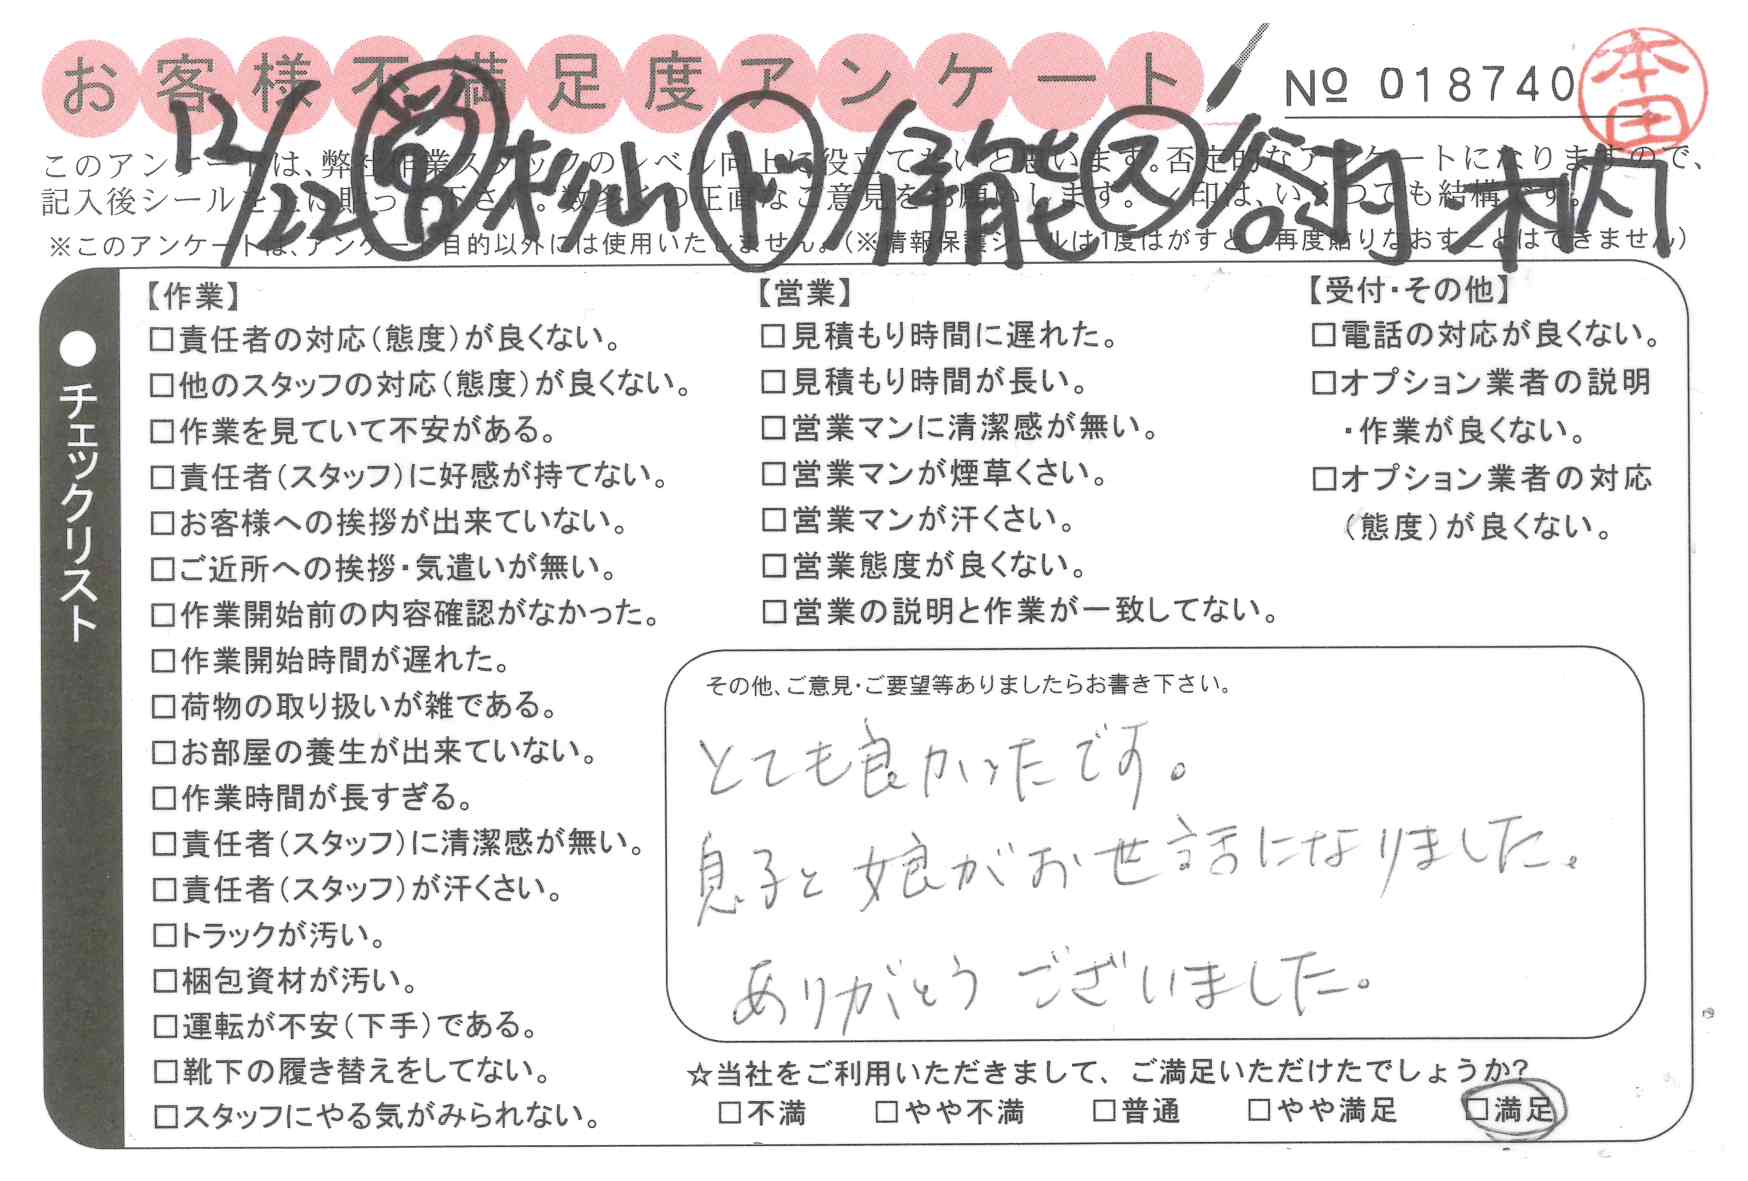 お客様不満足度アンケート
№ 018740
本田
12/22 営 松山 ド 伊能 ス 谷沢
このアンケートは、弊社作業スタッフのレベル向上に役立てたいと思います。否定的なアンケートになりますので、
記入後シールを上に貼って下さい。数多くの正直なご意見をお願いします。✓印は、いくつでも結構です。
※このアンケートは、アンケート目的以外には使用いたしません。(※情報保護シールは1度はがすと、再度貼りなおすことはできません)
●チェックリスト
【作業】
□責任者の対応(態度)が良くない。
□他のスタッフの対応(態度)が良くない。
□作業を見ていて不安がある。
□責任者(スタッフ)に好感が持てない。
□お客様への挨拶が出来ていない。
□ご近所への挨拶・気遣いが無い。
□作業開始前の内容確認がなかった。
□作業開始時間が遅れた。
□荷物の取り扱いが雑である。
□お部屋の養生が出来ていない。
□作業時間が長すぎる。
□責任者(スタッフ)に清潔感が無い。
□責任者(スタッフ)が汗くさい。
□トラックが汚い。
□梱包資材が汚い。
□運転が不安(下手)である。
□靴下の履き替えをしてない。
□スタッフにやる気がみられない。
【営業】
□見積もり時間に遅れた。
□見積もり時間が長い。
□営業マンに清潔感が無い。
□営業マンが煙草くさい。
□営業マンが汗くさい。
□営業態度が良くない。
□営業の説明と作業が一致してない。
【受付・その他】
□電話の対応が良くない。
□オプション業者の説明
・作業が良くない。
□オプション業者の対応
(態度)が良くない。
その他、ご意見・ご要望等ありましたらお書き下さい。
とても良かったです。
息子と娘がお世話になりました。
ありがとうございました。
☆当社をご利用いただきまして、ご満足いただけたでしょうか?
□不満 □やや不満 □普通 □やや満足 □満足